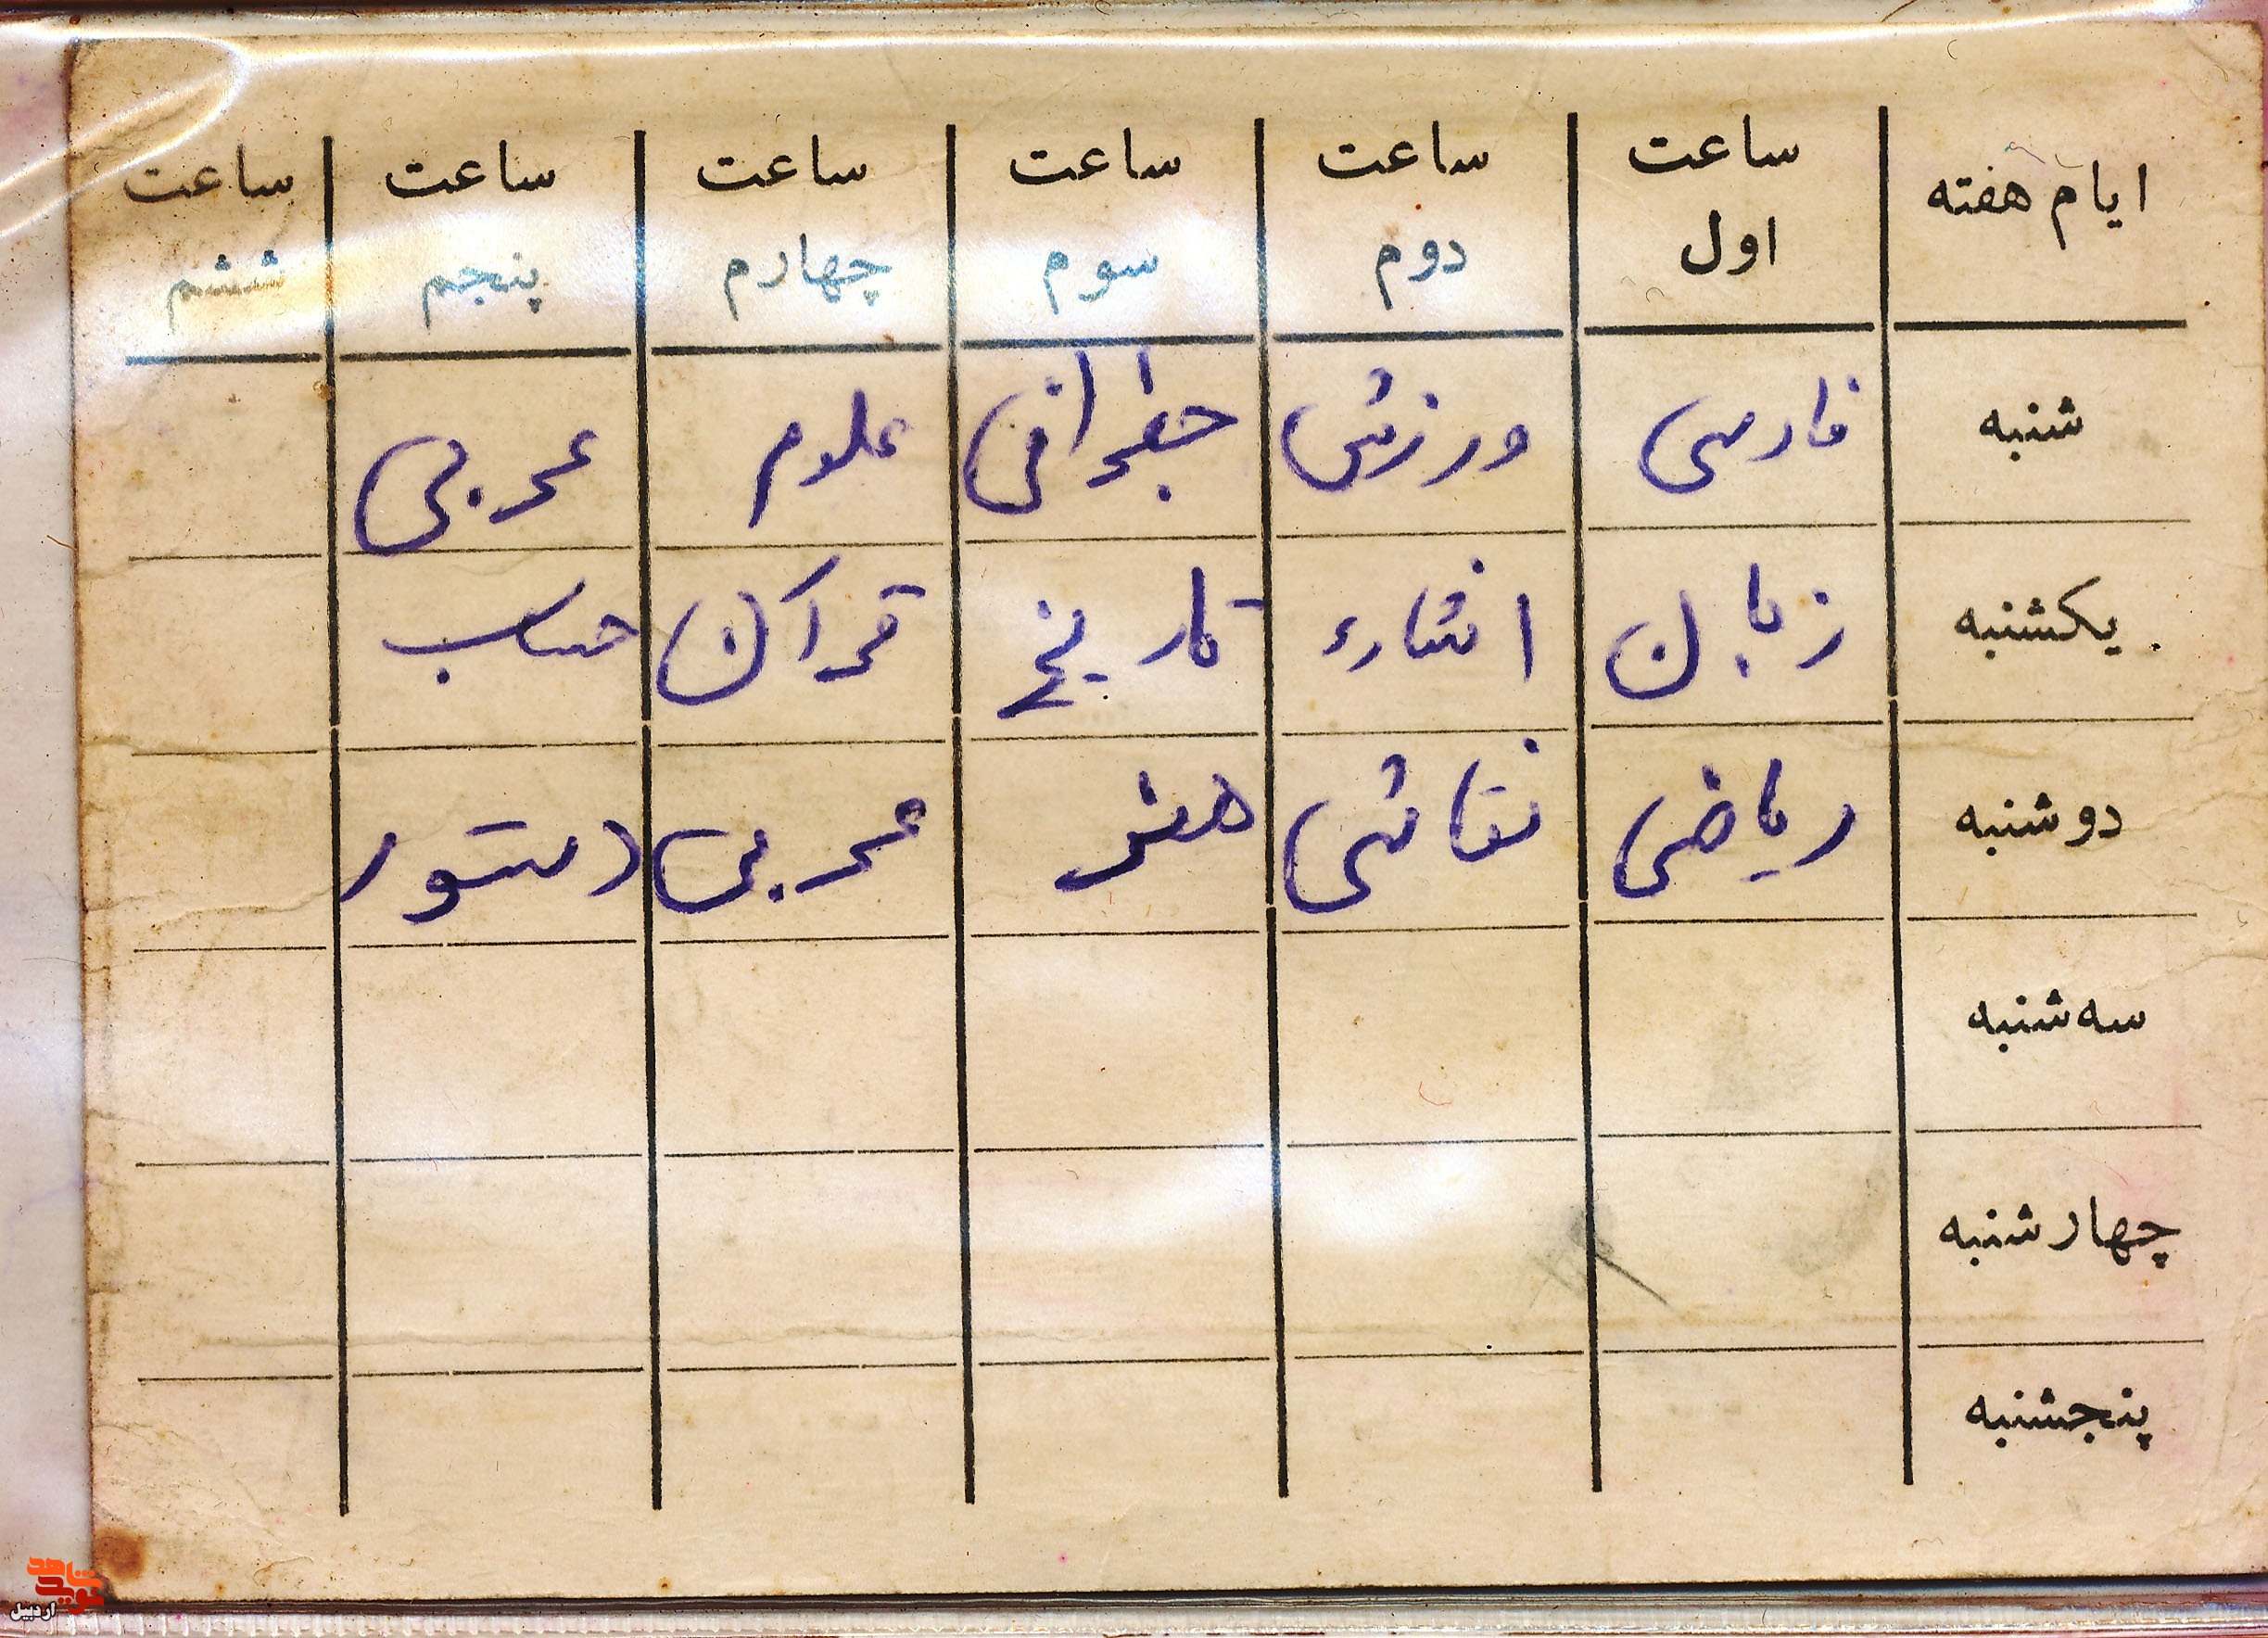 ایام هفته ساعت اول ساعت دوم ساعت سوم ساعت چهارم ساعت پنجم ساعت ششم
شنبه فارسی ورزش جغرافی علوم عربی
یکشنبه زبان انشاء تاریخ قرآن حساب
دوشنبه ریاضی نقاشی هنر عربی دستور
سه شنبه
چهارشنبه
پنجشنبه
نوید شاهد
اردبیل